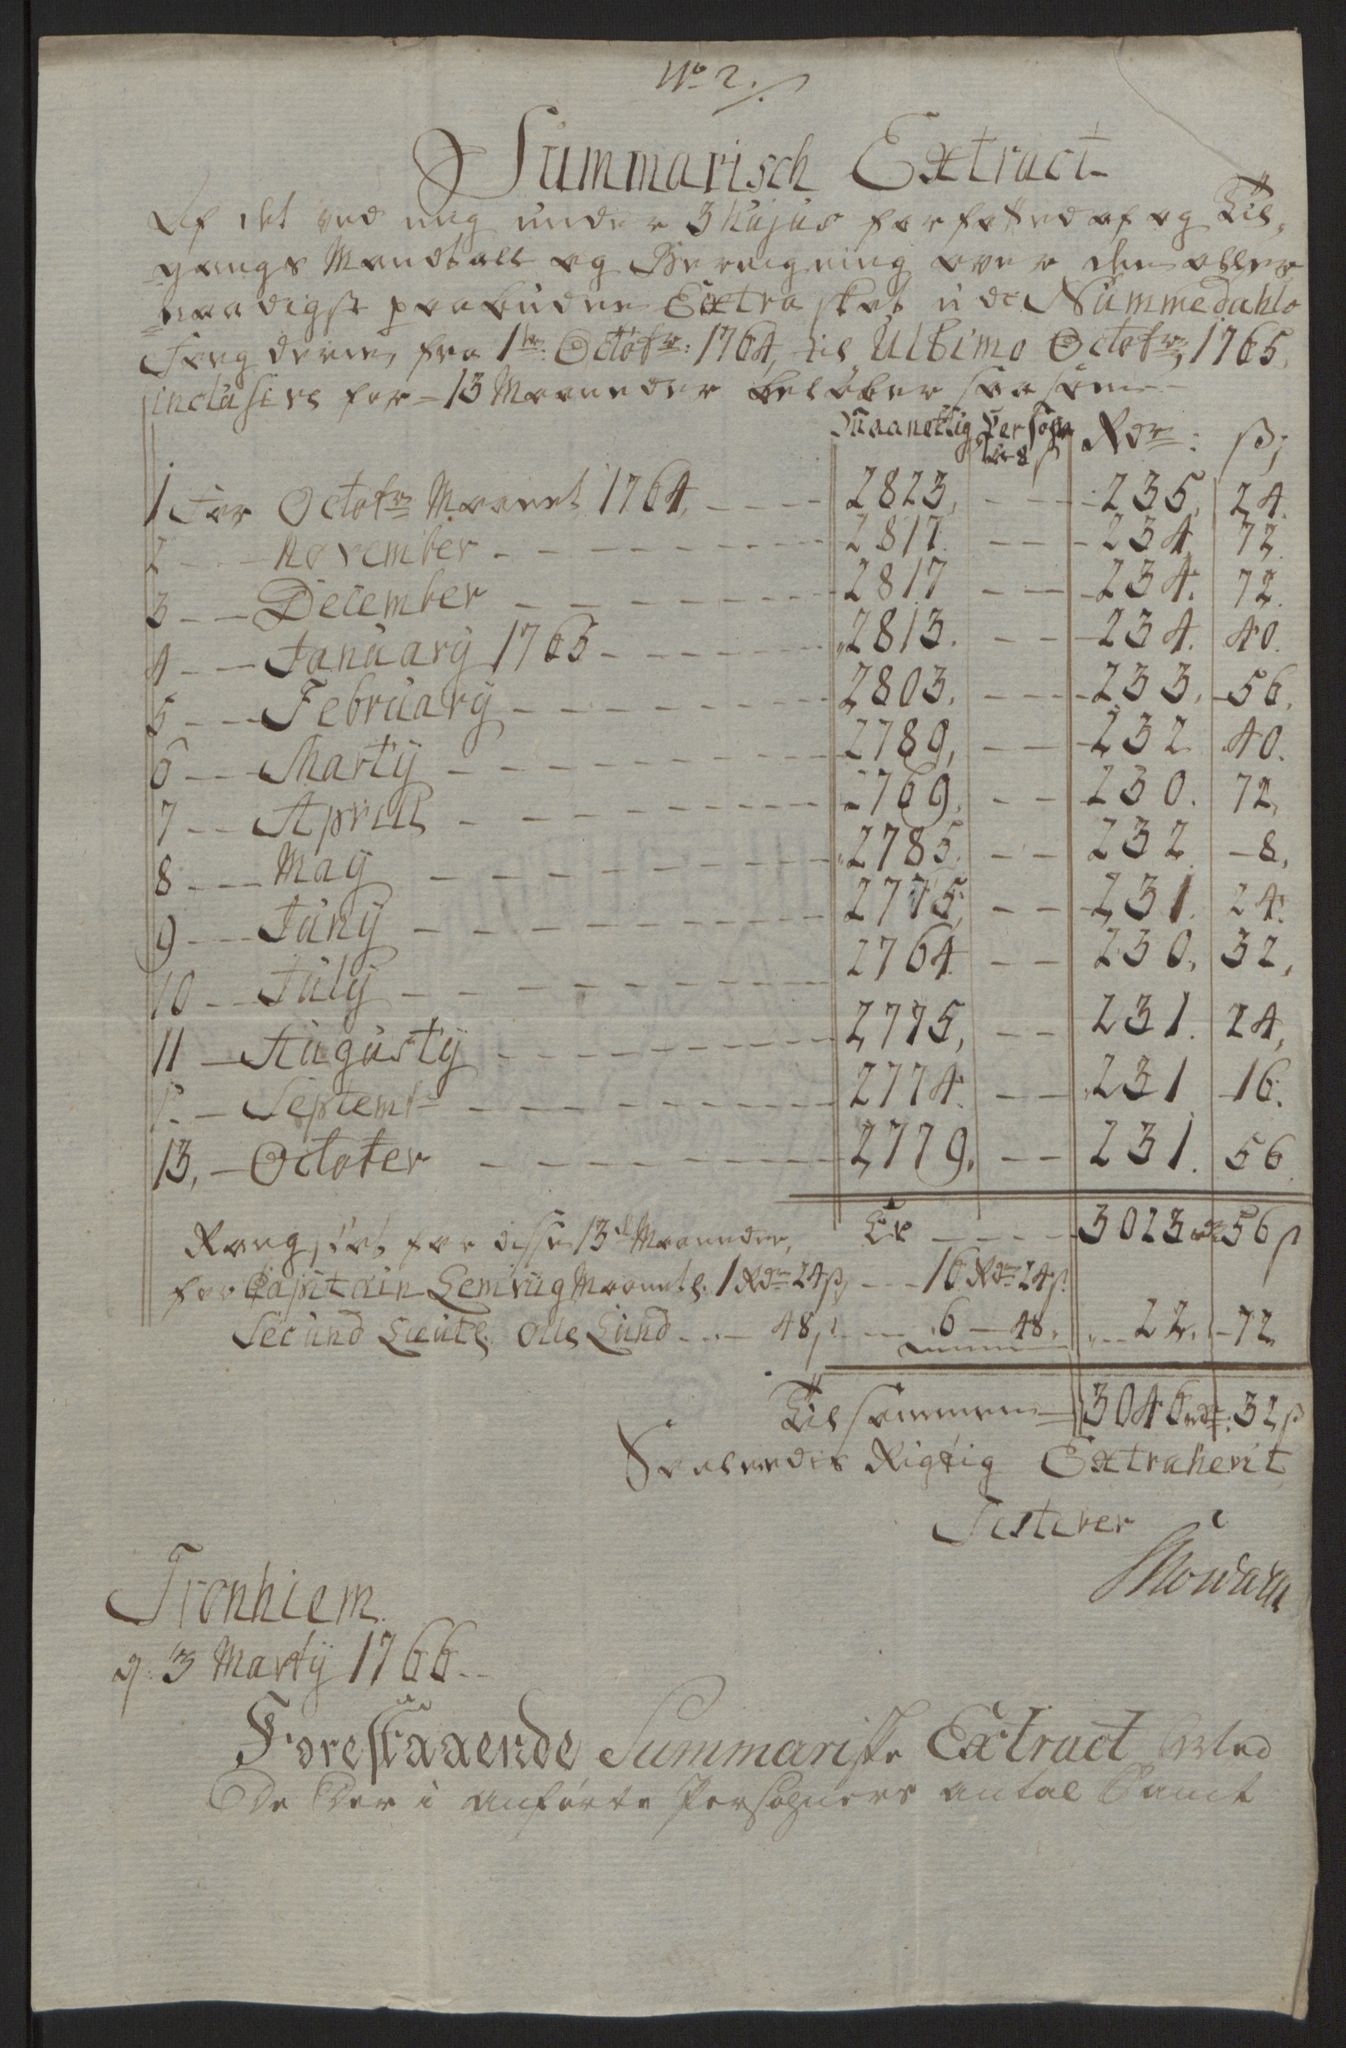 No 2.
Summarisch Extract
Af det ved mig under 3 hujus forfattede af og Til,
gangs Mandtall og Beregning over den aller
naadigst paabudne Extra skat udi Nummedahls
Fogderie, fra 1te Octobr: 1764, til Ultimo Octobr, 1765,
inclusive for 13 Maaneder beløber saasom
Maanetlig Personer à 8 ß Rdr: ß;
1 For Octobr Maanet 1764, 2823, 235, 24.
2 November 2817. 234, 72
3 December 2817 234. 72.
4 January 1765 2813. 234. 40.
5 February 2803. 233. 56.
6 Marty 2789, 232 40.
7 Aprill 2769. 230. 72,
8 May 2785. 232 8,
9 Juny 2775, 231. 24.
10 July 2764 230. 32,
11 Augusty 2775, 231. 24,
Septembr 2774. 231 16.
13, October 2779. 231. 56
Rangskat for disse 13 Maaneder, Er 3023 rdr 56 ß
for Capitain Lemvig Maanetl. 1 Rdr 24 ß, 16 Rdr 24 ß.
Secund Lieutn. Olle Lund 48 ß 6 48. 22. 72
Tilsammen 3046 rdr. 32 ß
Saaledes Rigtig Extraherit
Testerer
Tronhiem
d: 3 Marty 1766
Forestaaende Summariske Extract
De der i anførte Persohners antal Samt